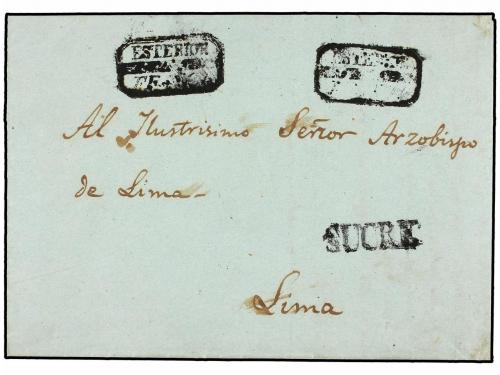 ESTERIOR
Al Ilustrisimo Señor Arzobispo
de Lima-
SUCRE
Lima